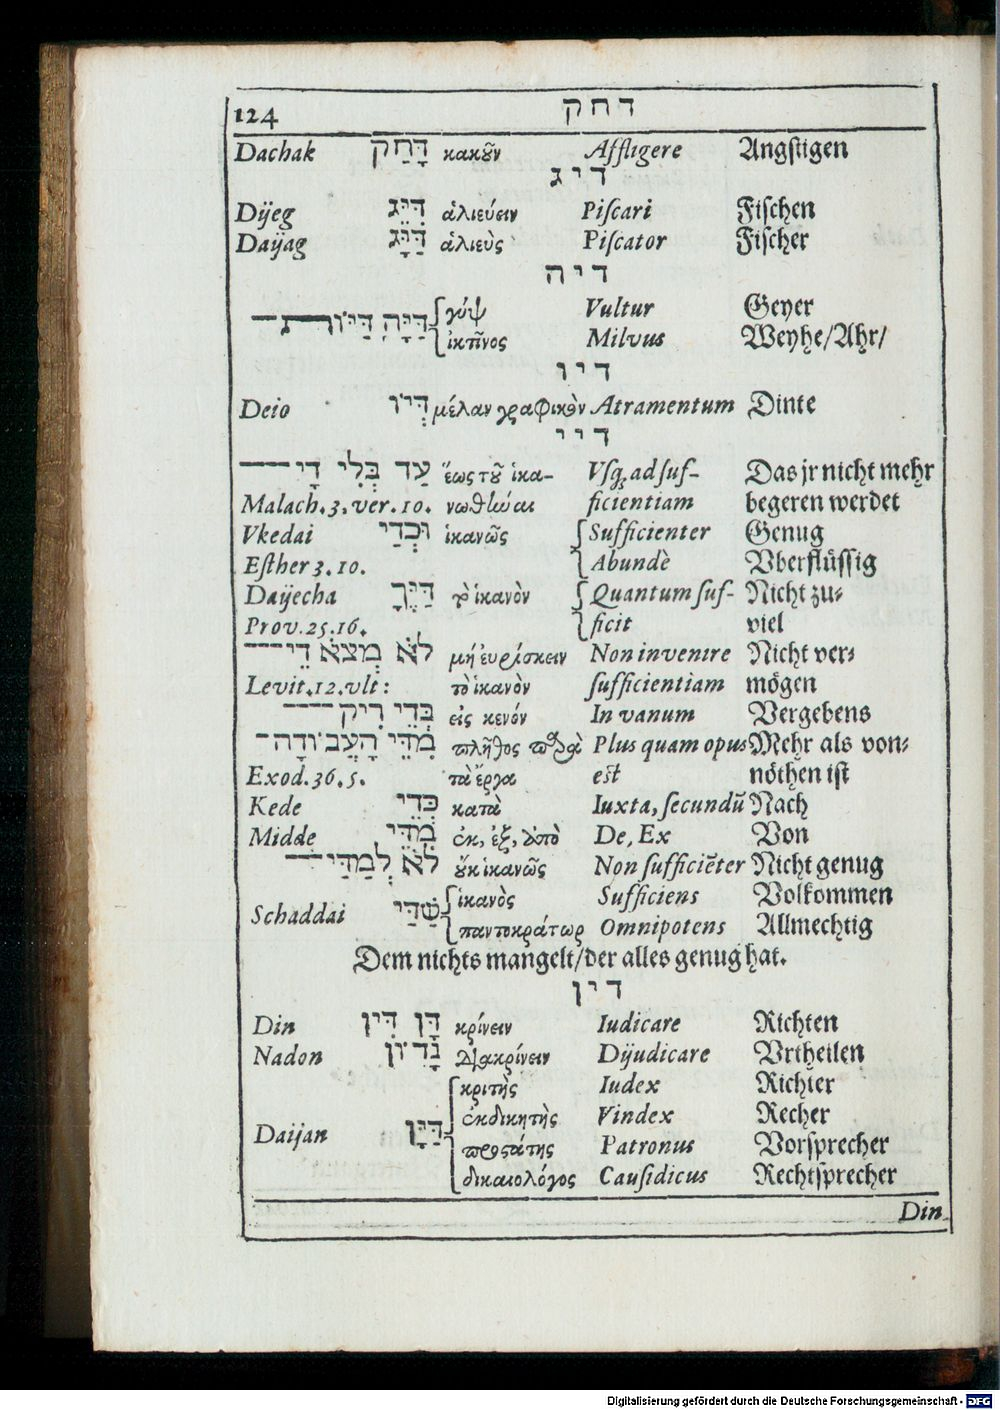 124 דחק
Dachak דָּחַק κακοῦν Affligere Angſtigen
דיג
Dijeg דִּיֵּג ἁλιεύειν Piſcari Fiſchen
Daijag דַּיָּג ἁλιεὺς Piſcator Fiſcher
דיה
γὺψ Vultur Geyer
דַּיָּה דַּיּוֹת ἰκτῖνος Milvus Weyhe/Ahr/
דיו
Deio דְּיוֹ μέλαν γραφικὸν Atramentum Dinte
דיי
עַד בְּלִי דָי ἕως τοῦ ἱκα- Vſq; ad ſuf- Das jr nicht mehr
Malach. 3. ver. 10. νωθῆναι ficientiam begeren werdet
Vkedai וּכְדַי ἱκανῶς Sufficienter Genug
Eſther 3. 10. Abundè Vberflüſſig
Daijecha דַּיֶּךָּ τὸ ἱκανὸν Quantum ſuf- Nicht zu-
Prov. 25. 16. ficit viel
לֹא מְצֹא דֵי μὴ εὑρίσκειν Non invenire Nicht ver-
Levit. 12. vlt: τὸ ἱκανὸν ſufficientiam mögen
בְּדֵי רִיק εἰς κενόν In vanum Vergebens
מִדֵּי הָעֲבוֹדָה πλῆθος παρὰ Plus quam opus Mehr als von-
Exod. 36. 5. τὰ ἔργα eſt nöthen iſt
Kede כְּדֵי κατὰ Iuxta, ſecundũ Nach
Midde מִדֵּי ἐκ, ἐξ, ἀπὸ De, Ex Von
לֹא לְמַדַּי οὐκ ἱκανῶς Non ſufficiẽter Nicht genug
ἱκανὸς Sufficiens Volkommen
Schaddai שַׁדַּי παντοκράτωρ Omnipotens Allmechtig
Dem nichts mangelt/der alles genug hat.
דין
Din דָּן דִּין κρίνειν Iudicare Richten
Nadon נָדוֹן διακρίνειν Dijudicare Vrtheilen
κριτὴς Iudex Richter
ἐκδικητὴς Vindex Recher
Daijan דַּיָּן προστάτης Patronus Vorſprecher
δικαιολόγος Cauſidicus Rechtſprecher
Din
Digitalisierung gefördert durch die Deutsche Forschungsgemeinschaft - DFG